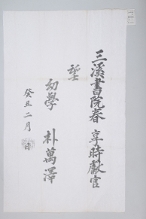 三溪書院春享時獻官
望
幼學 朴萬澤
癸丑二月 日